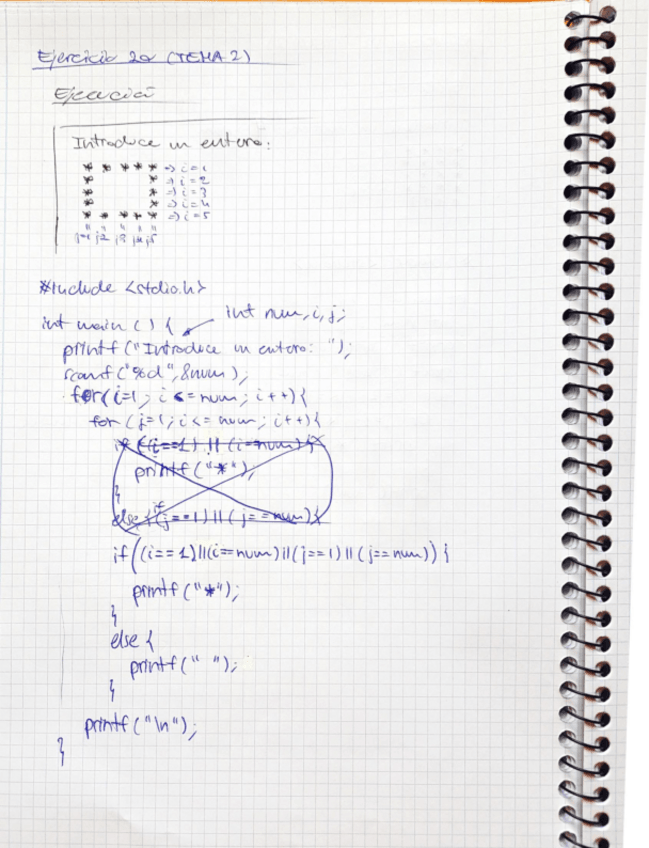 Ejercicio 2a (TEMA 2)
Ejecución
Introduce un entero:
* * * * * => i=1
* * => i=2
* * => i=3
* * => i=4
* * * * * => i=5
" " " " "
j=1 j2 j3 j4 j5
#include <stdio.h>
int main () { int num, i, j;
printf ("Introduce un entero: ");
scanf ("%d", &num);
for (i=1; i <= num; i++) {
for (j=1; i <= num; i++) {
if ((i==1) || (i=num) {
printf ("*");
}
else if { (j==1) || (j==num) {
if ((i==1) || (i==num) || (j==1) || (j==num)) {
printf ("*");
}
else {
printf (" ");
}
printf ("\n");
}